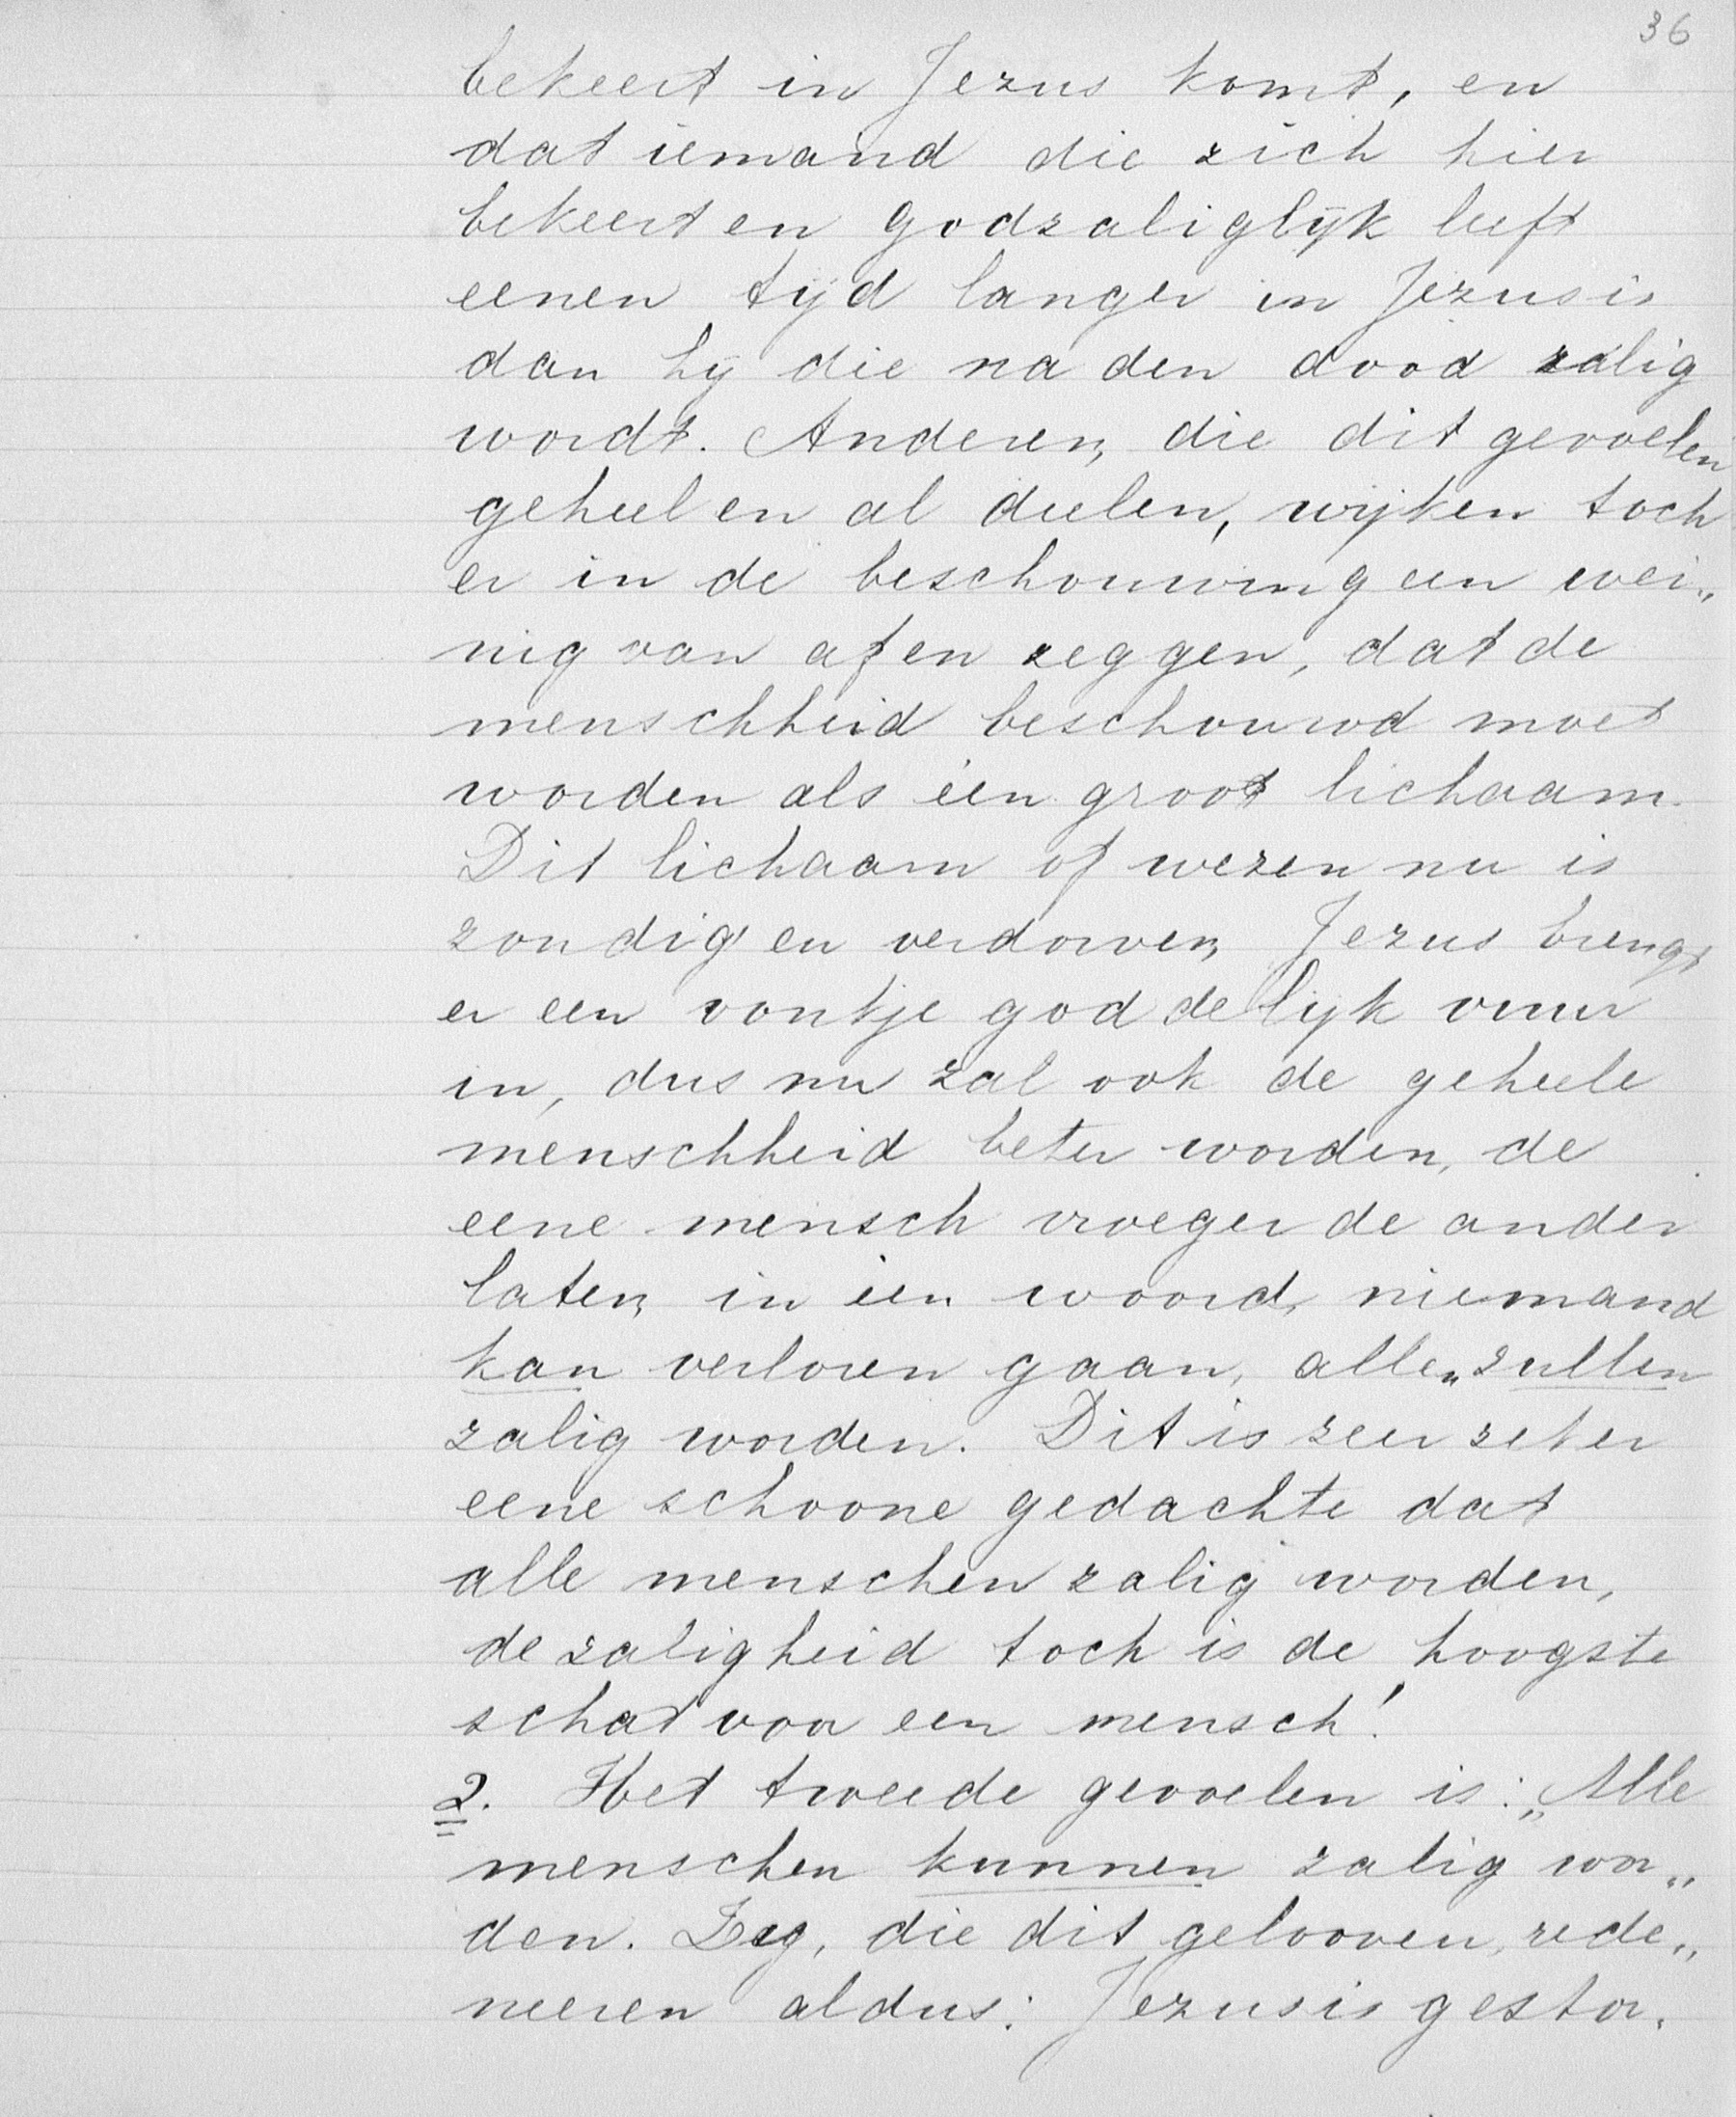 36
bekeert in Jezus komt, en
dat iemand die zich hier
bekeert en godzaliglijk leeft
eenen tijd langer in Jezus is
dan hij die na den dood zalig
wordt. Anderen, die dit gevoelen
geheel en al deelen, wijken toch
er in de beschouwing een wei„
nig van af en zeggen, dat de
menschheid beschouwd moet
worden als één groot lichaam.
Dit lichaam of wezen nu is
zondig en verdorven, Jezus brengt
er een vonkje goddelijk vuur
in, dus nu zal ook de geheele
menschheid beter worden, de
eene mensch vroeger de ander
later, in één woord, niemand
kan verloren gaan, allen zullen
zalig worden. Dit is zeer zeker
eene schoone gedachte dat
alle menschen zalig worden,
de zaligheid toch is de hoogste
schat voor een mensch!
2. Het tweede gevoelen is: „Alle
menschen kunnen zalig wor„
den. Zij, die dit gelooven, rede„
neeren aldus: Jezus is gestor.